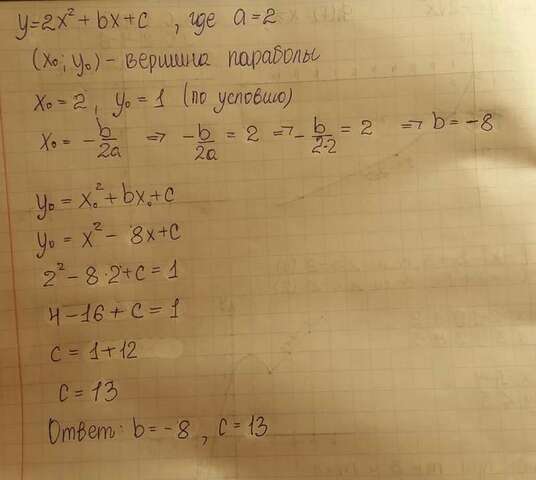 y=2x²+bx+c , где a=2
(x₀; y₀) - вершина параболы
x₀=2, y₀=1 (по условию)
x₀ = -b/2a => -b/2a = 2 => -b/2·2 = 2 => b=-8
y₀ = x₀²+bx₀+c
y₀ = x² - 8x+c
2²-8·2+c=1
4-16+c=1
c = 1+12
c = 13
Ответ: b=-8, c=13